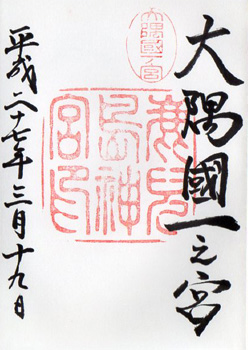 大隅國一之宮
大隅國一ノ宮
鹿兒
島神
宮印
平成二十七年三月十九日